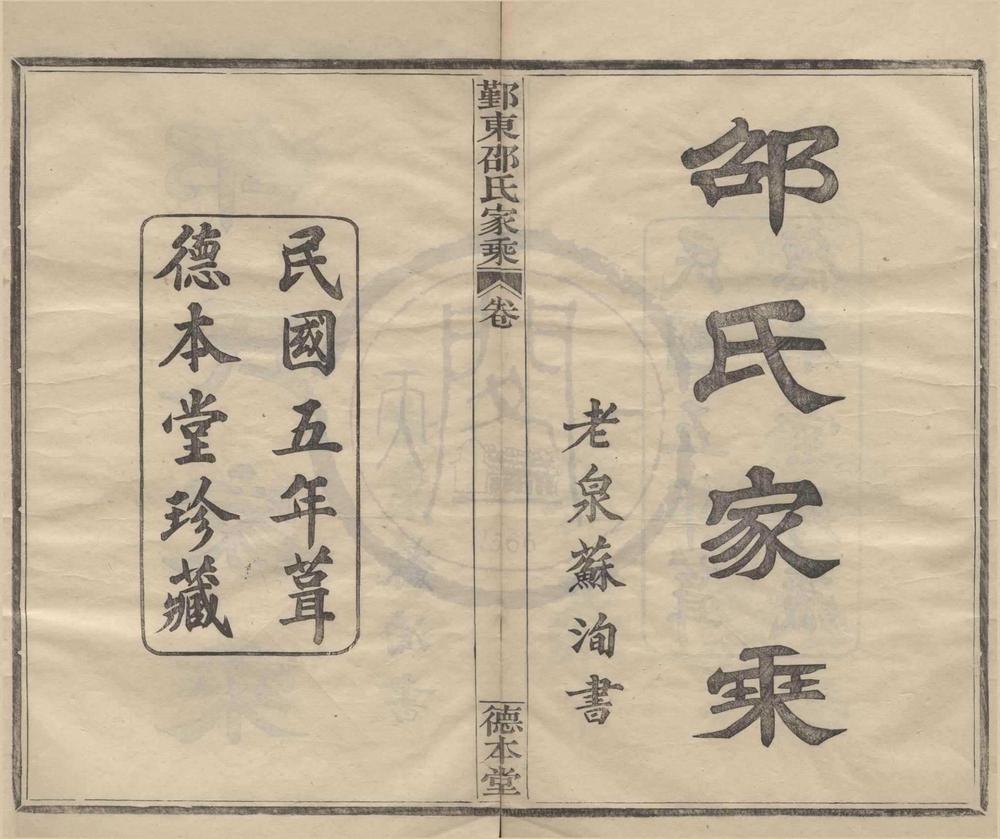 邵氏家乘
老泉蘇洵書
鄞東邵氏家乘
卷
德本堂
民國五年葺
德本堂珍藏